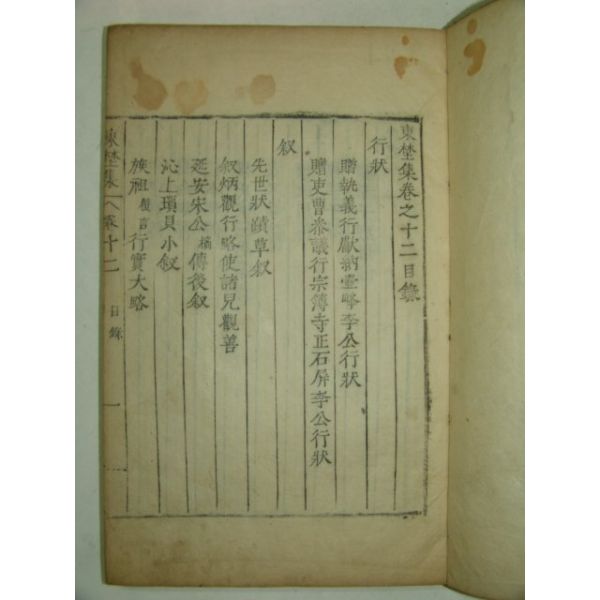 東埜集卷之十二目錄
行狀
贈執義行獻納壺峰李公行狀
贈吏曹叅議行宗簿寺正石屛李公行狀
叙
先世狀蹟草叙
叙炳觀行略使諸兒觀善
延安宋公橘傳後叙
沁上瑣見小叙
族祖 言行實大略
東埜集 卷十二 目錄 一